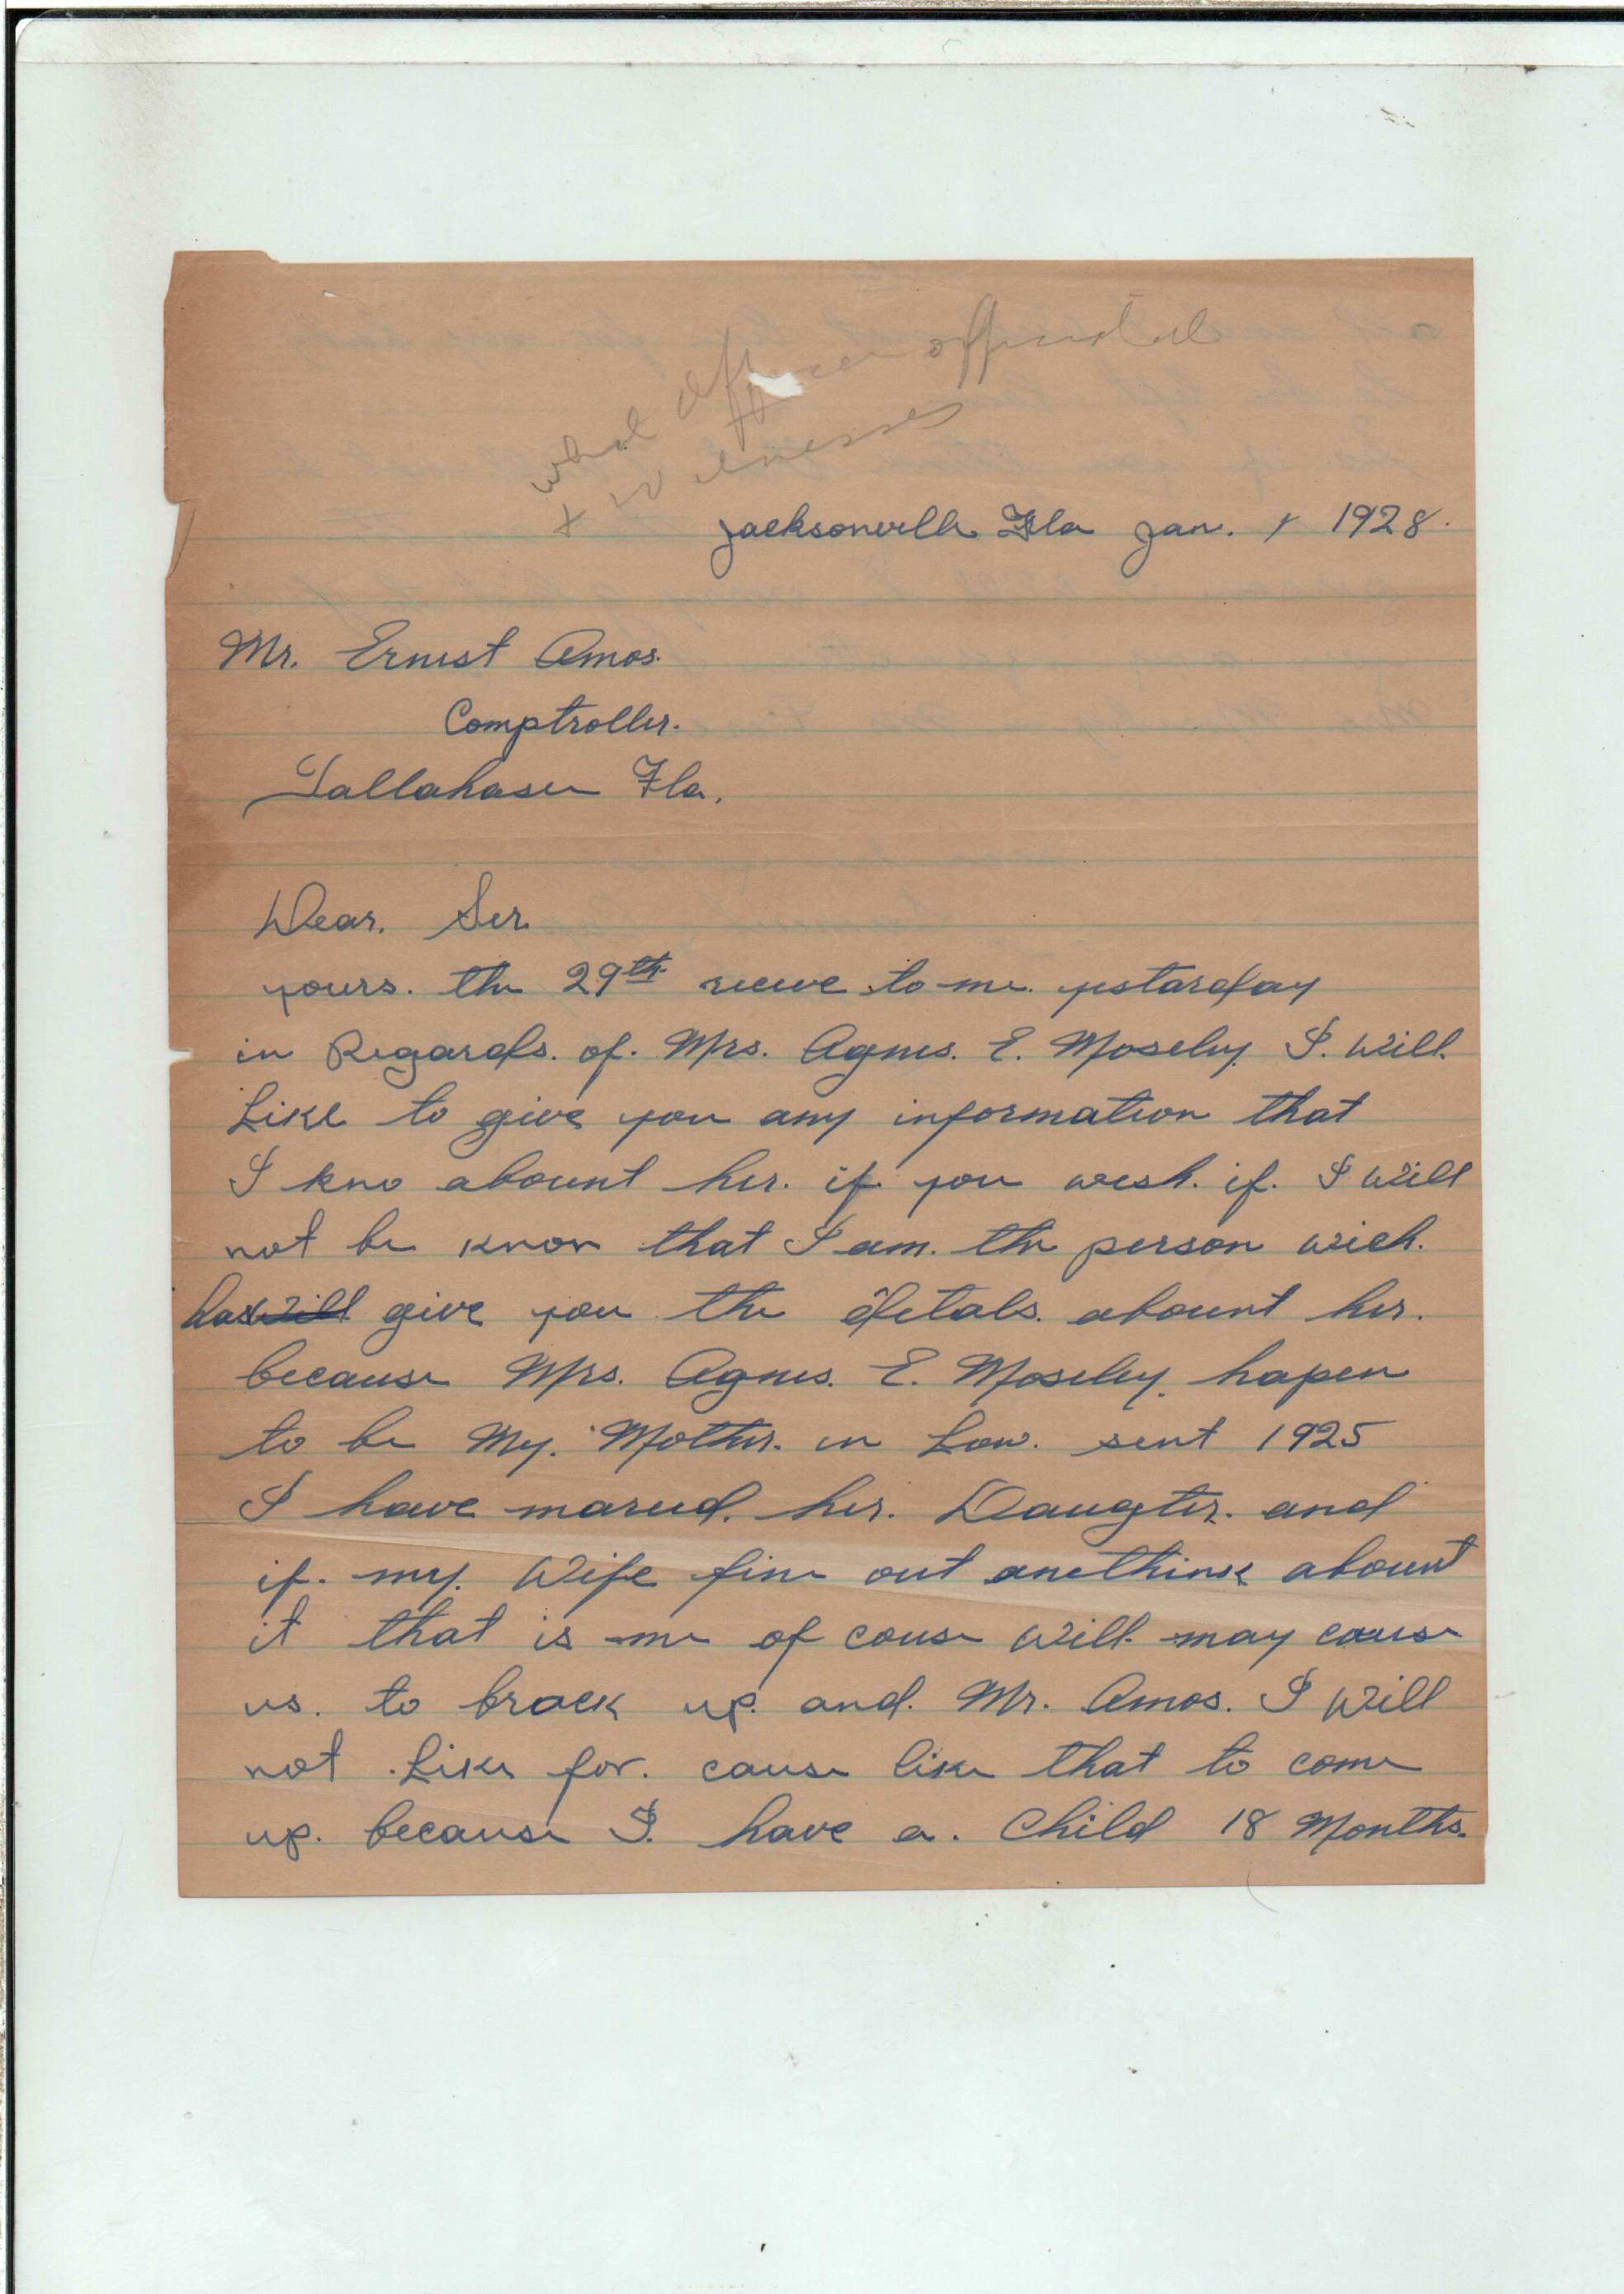 what officer
+ witnesses
Jacksonville Fla Jan. 1 1928.
Mr. Ernest Amos.
Comptroller.
Tallahasee Fla.
Dear. Ser.
yours. the 29th recive to me. yestarday
in Regards. of. Mrs. Agnes. E. Moseley. I. will.
Like to give you any information that
I kno abount her. if. you wesh. if. I will
not be know that I am. the person wich.
has will give you the detals. abount her.
because Mrs. Agnes. E. Moseley. hapen
to be My. Mother. in Low. sent 1925
I have maried. her. Daugter. and
if. my. Wife fine out anethink abount
it that is me of couse will. may couse
us. to brack up. and. Mr. Amos. I will
not. Like for. cause like that to come
up. because I. have a. Child 18 Months.